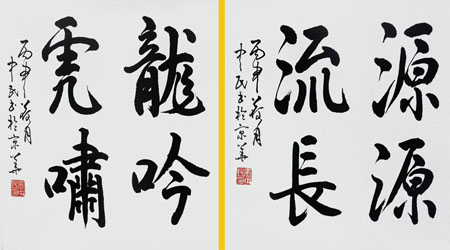 龍吟
虎嘯
丙申荷月
中民书於京華
源源
流長
丙申荷月
中民书於京華